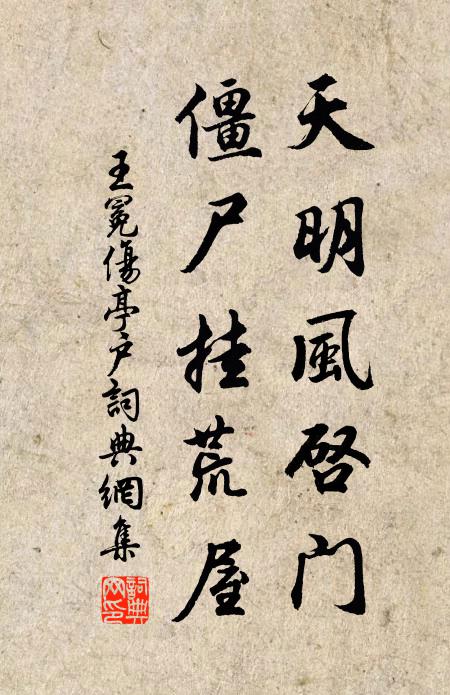 天明風啓門
僵尸挂荒屋
王冕傷亭户詞典網集
詞典網印